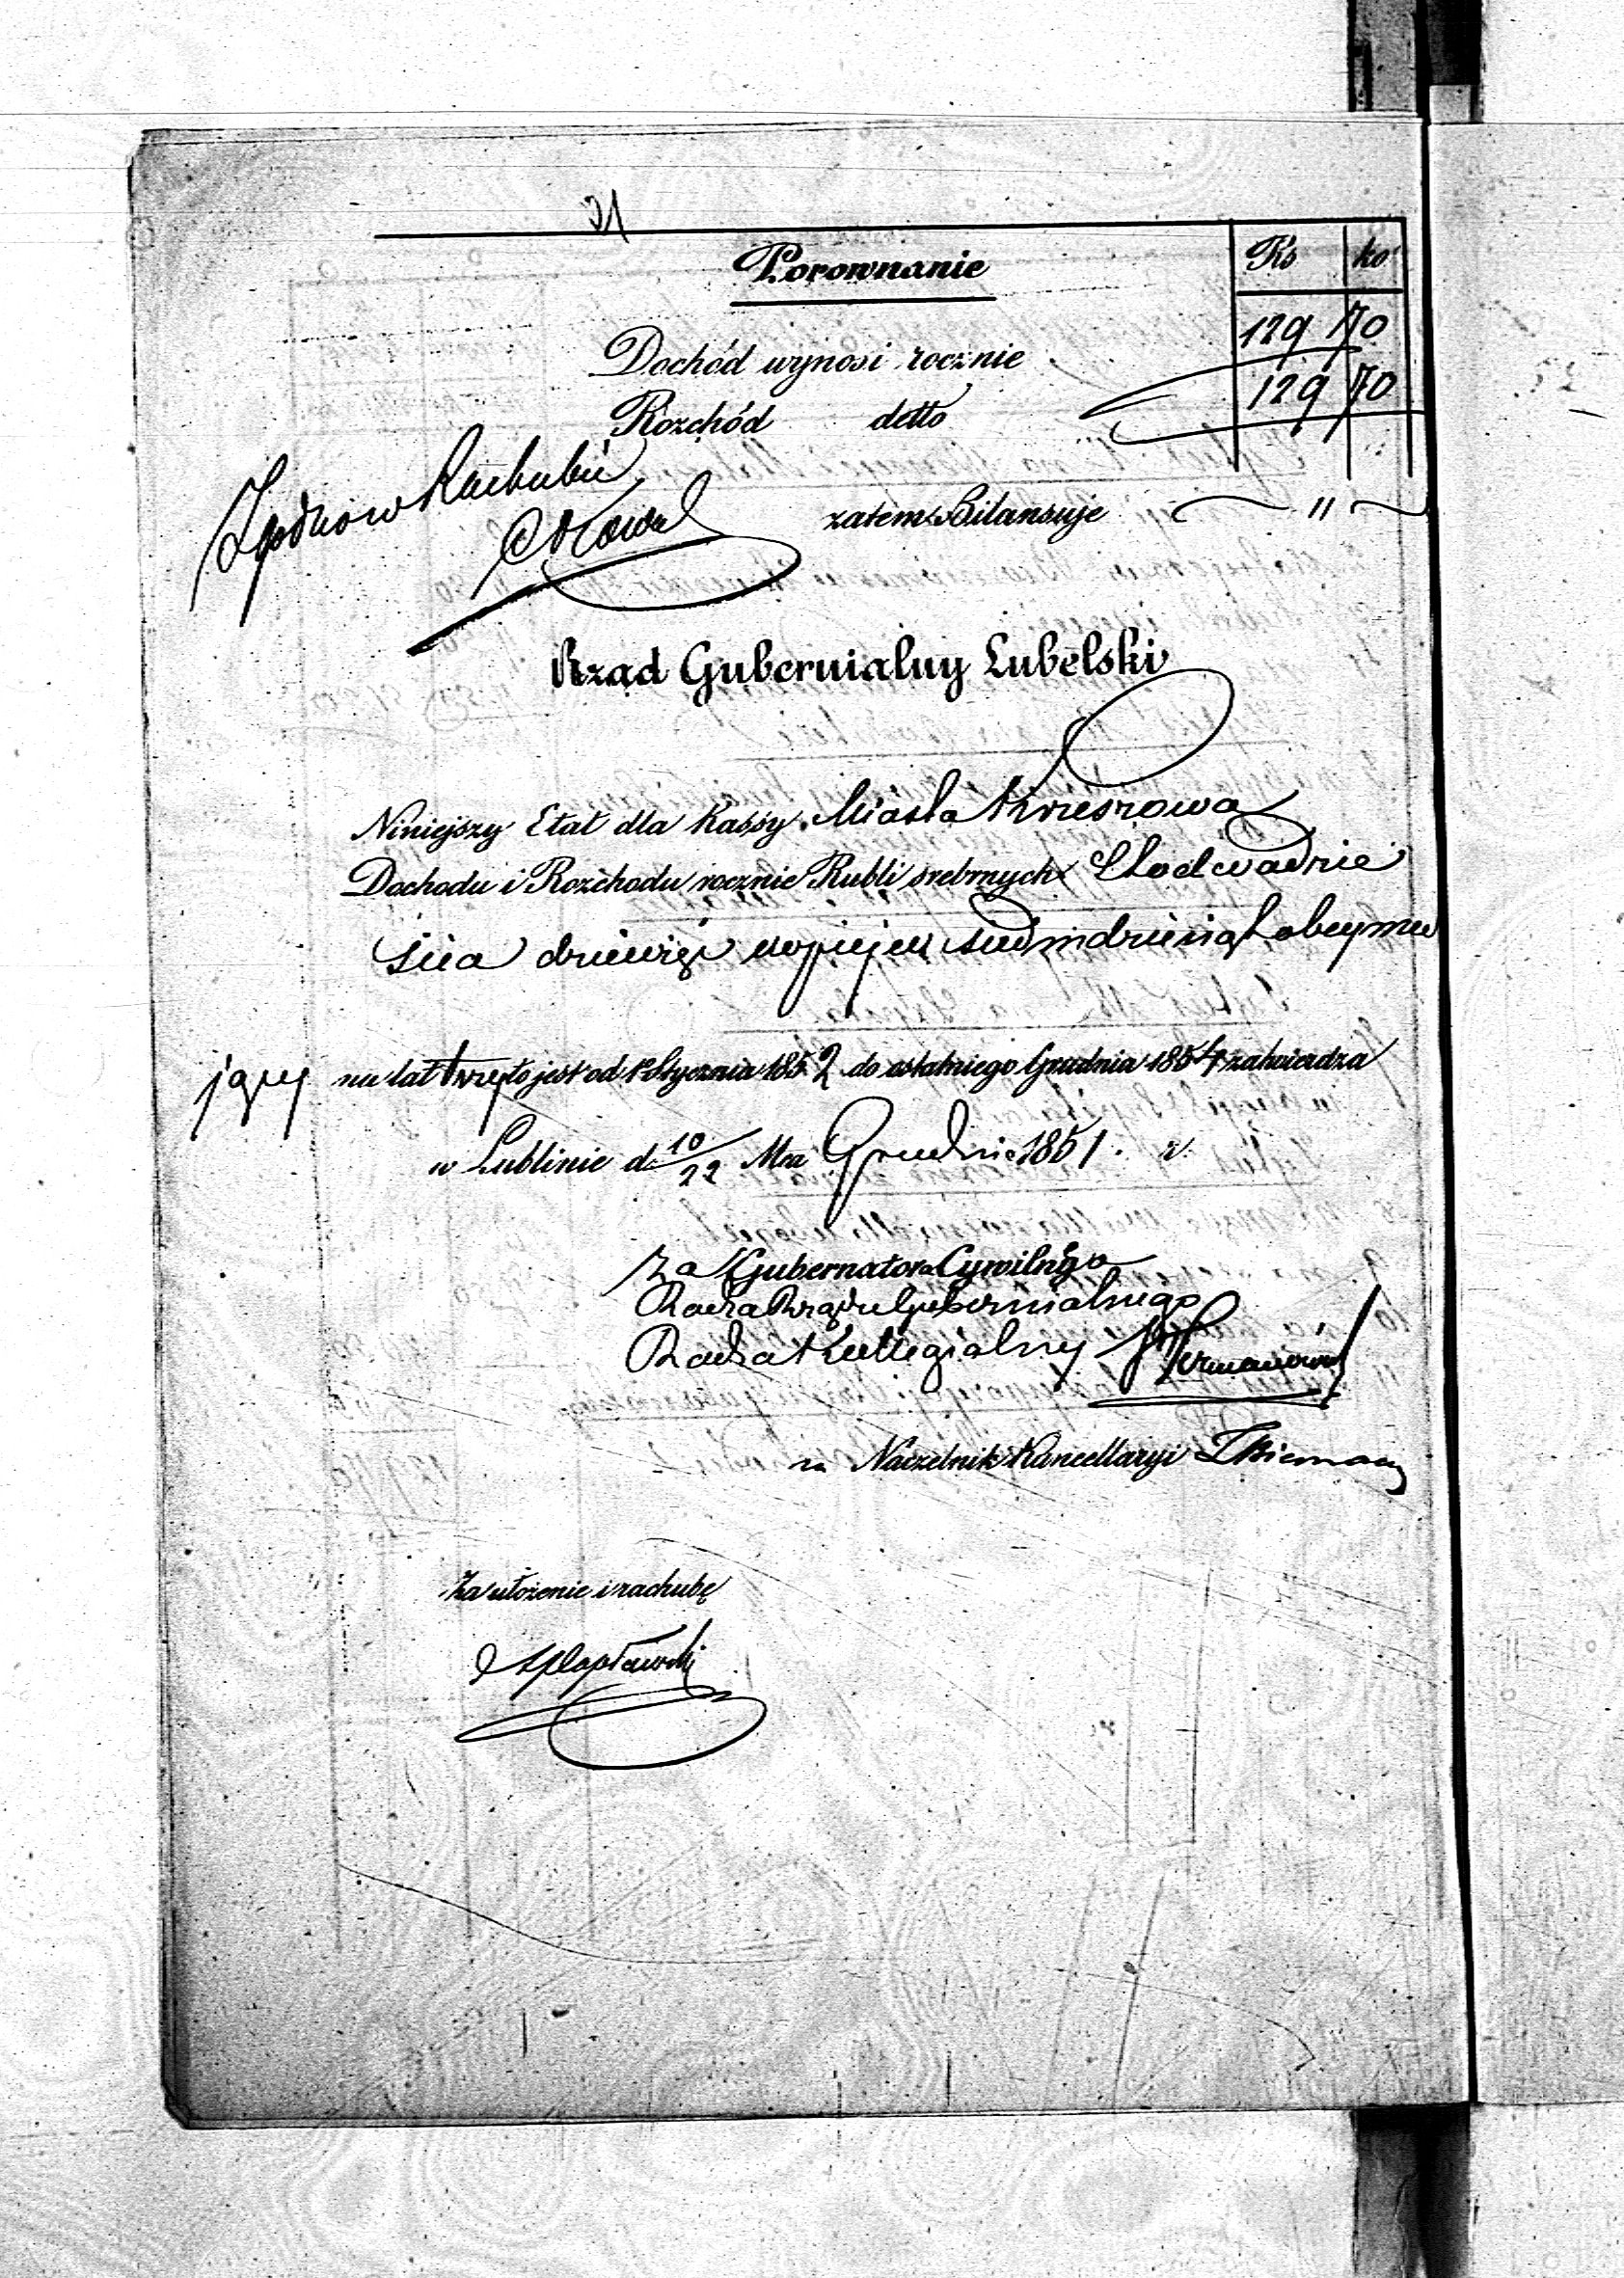 Porownanie
Rs ko
Dochód wynosi rocznie 129 70
Rozchód detto 129 70
Zgodno w Rachubie
zatem Bilansuje — " —
Rząd Gubernialny Lubelski
Niniejszy Etat dla Kassy Miasta Krzeszowa
Dochodu i Rozchodu rocznie Rubli srebrnych Sto dwadzie
ścia dziewięć kopiejek siedmdziesiąt obeymu
jący na lat trzy to jest od 1 Stycznia 1852 do ostatniego Grudnia 1854 zatwierdza
w Lublinie d. 10/22 Mca Grudnia 1851. r.
Za Gubernatora Cywilnego
Radca Rządu Gubernialnego
Radca Kollegialny
Naczelnik Kancellaryi
Za ułożenie i rachubę